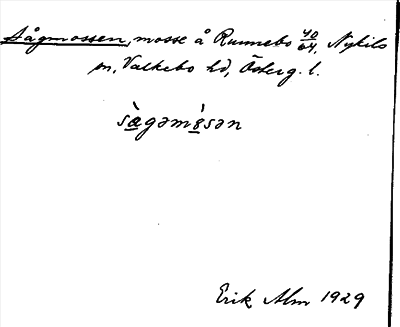 Sågmossen, mosse å Runnebo 40/64. Nykils
sn, Valkebo hd, Österg. l.
sàgəmósən
Erik Alm 1929